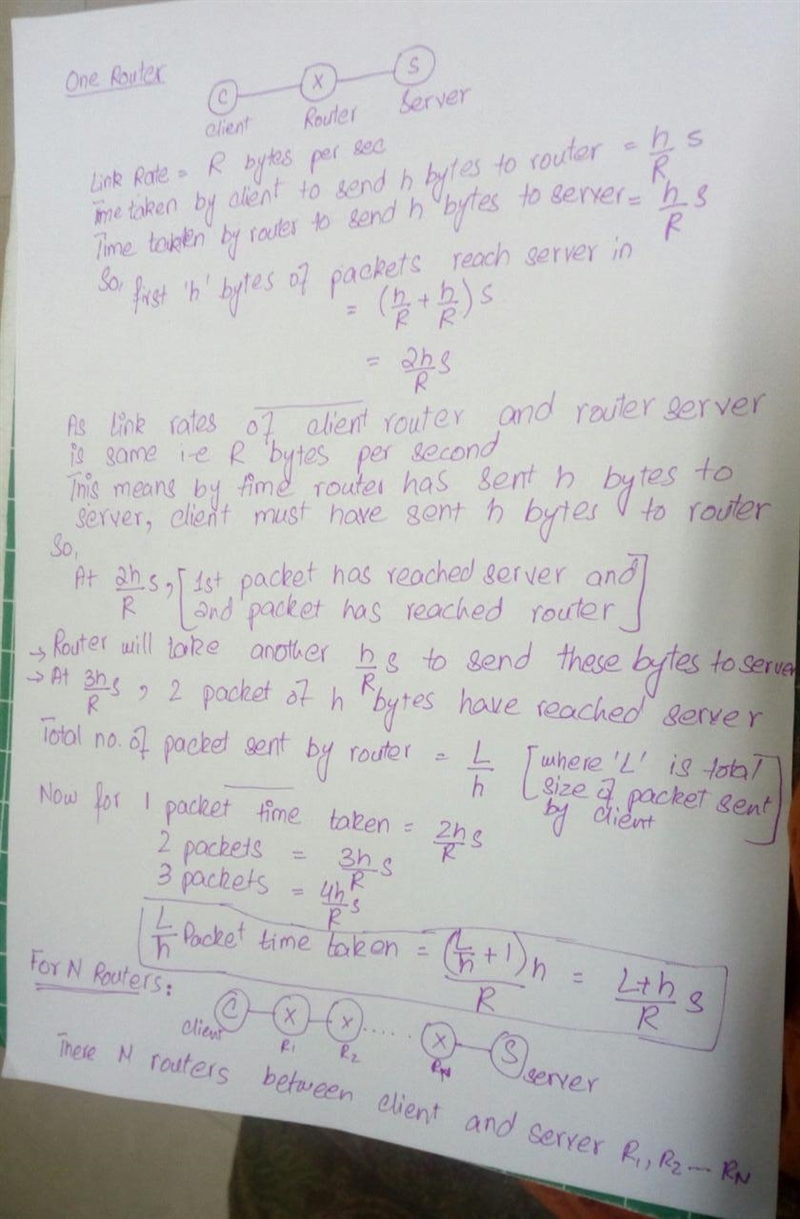 One Router
C X S
Client Router Server
Link Rate = R bytes per sec
Time taken by client to send h bytes to router = h/R s
Time taken by router to send h bytes to server = h/R s
So, first 'h' bytes of packets reach server in
= (h/R + h/R) s
= 2h/R s
As link rates of client router and router server
is same i-e R bytes per second
This means by time router has sent h bytes to
server, client must have sent h bytes to router
So,
At 2h/R s, [1st packet has reached server and
2nd packet has reached router]
→ Router will take another h/R s to send these bytes to server
→ At 3h/R s, 2 packet of h bytes have reached server
Total no. of packet sent by router = L/h [where 'L' is total
size of packet sent
by client]
Now for 1 packet time taken = 2h/R s
2 packets = 3h/R s
3 packets = 4h/R s
L/h Packet time taken = (L/h + 1)h/R = L+h/R s
For N Routers:
C X X ..... X S
client R1 R2 RN server
There N routers between client and server R1, R2 --- RN